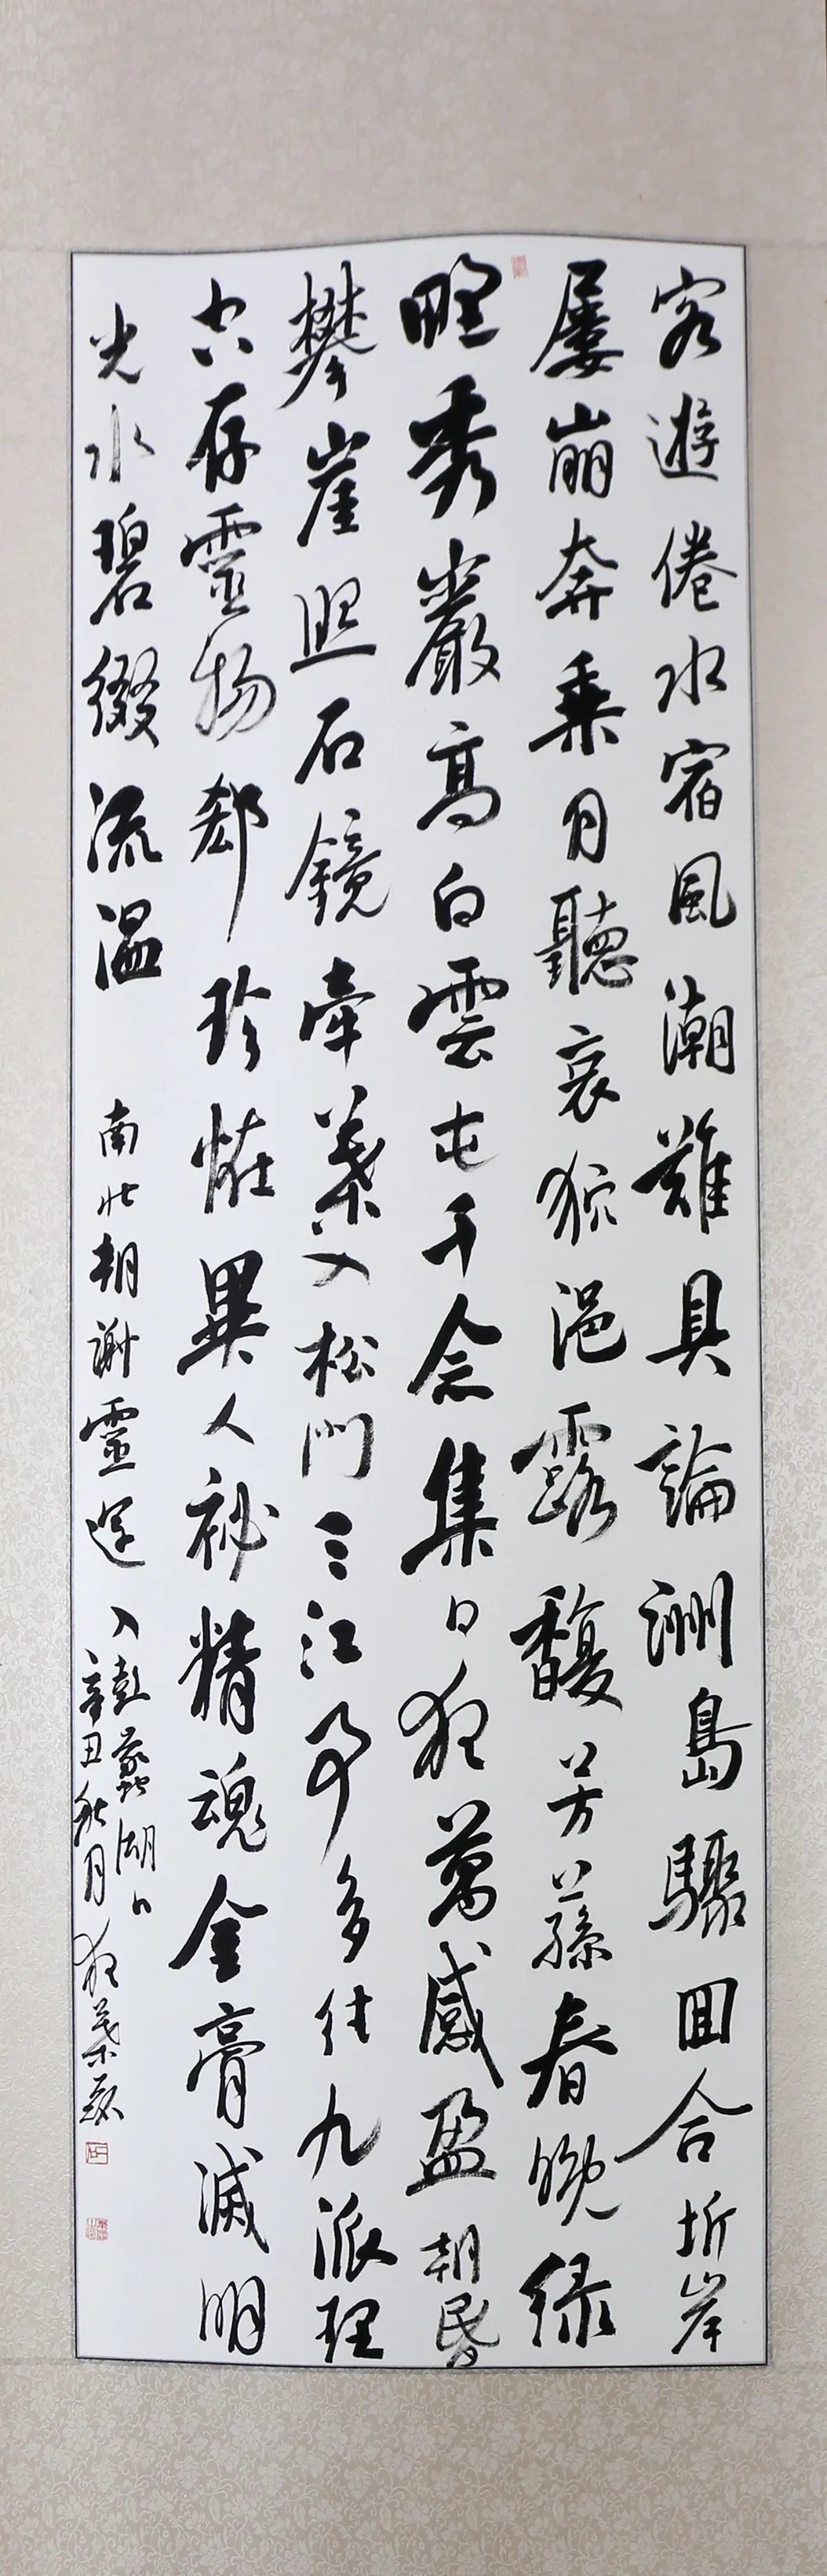 客遊倦水宿風潮難具論洲島驟回合圻岸
屢崩奔乘月聽哀狖浥露馥芳蓀春晚綠
野秀巖高白雲屯千念集日夜萬感盈朝昏
攀崖照石鏡牽葉入松門三江事多往九派理
空存靈物郄珍怪異人祕精魂金膏滅明
光水碧綴流溫 南北朝謝靈運 入彭蠡湖口
辛丑秋月